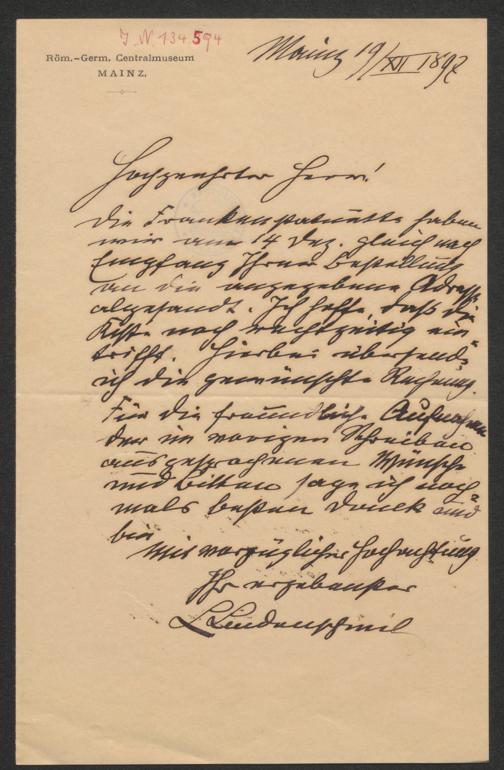 J. N. 134594
Röm.-Germ. Centralmuseum
MAINZ.
Mainz 19/XII 1897
Hochgeehrter Herr!
Die Frankenstatuette haben
wir am 14 Dez. gleich nach
Empfang Ihrer Bestellung
an die angegebene Adresse
abgesandt. Ich hoffe, daß die
Kiste noch rechtzeitig ein-
trifft. Hierbei übersende
ich die gewünschte Rechnung.
Für die freundliche Aufnahme
der im vorigen Schreiben
ausgesprochenen Wünsche
und Bitten sage ich noch-
mals besten Dank und
bin
Mit vorzüglicher Hochachtung
Ihr ergebenster
L Lindenschmit